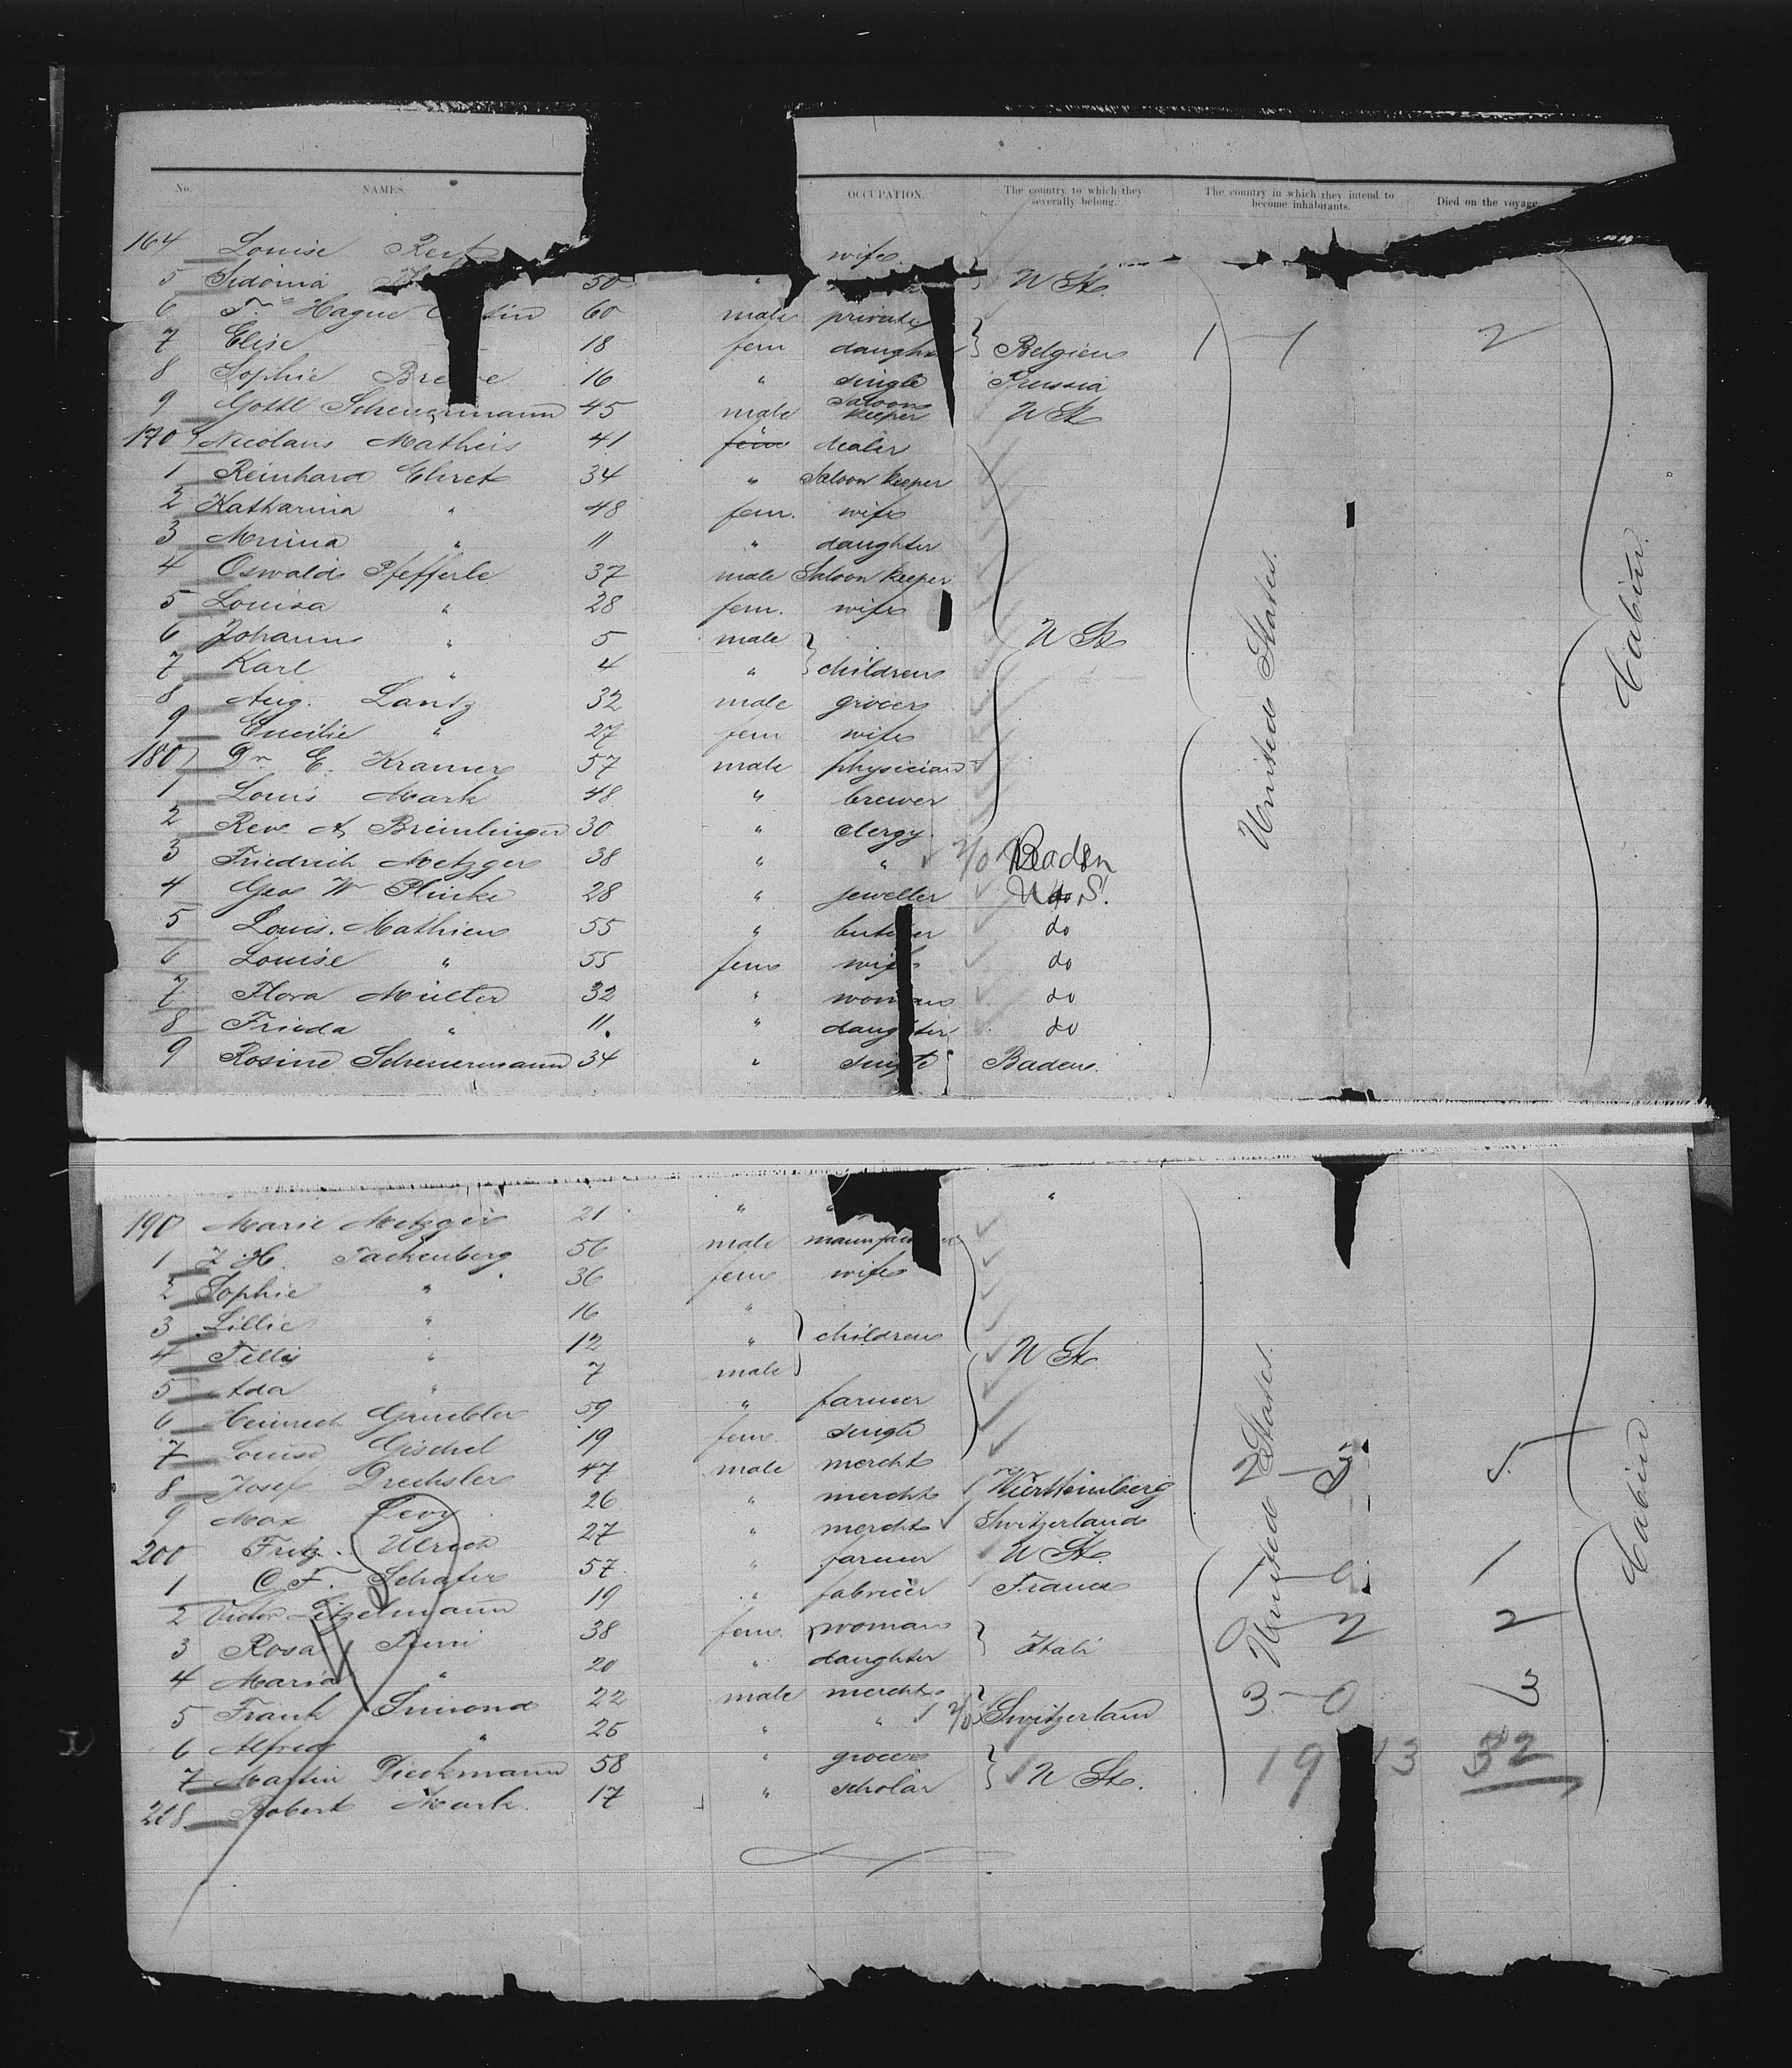 No. NAMES. OCCUPATION. The country to which they severally belong. The country in which they intend to become inhabitants. Died on the voyage
164 Louise wife
5 Sidonia 50 " U St.
6 Hague 60 male private
7 Elise 18 fem daughter Belgien 1 - 1 2
8 Sophie 16 " single Prussia
9 Gottl Scheuermann 45 male Saloon Keeper U St
170 Nicolaus Matheis 41 fem dealer
1 Reinhard Ehret 34 " Saloon Keeper
2 Katharina " 48 fem. wife
3 Minna " 11 " daughter
4 Oswald Pfefferle 37 male Saloon Keeper
5 Louisa " 28 fem. wife
6 Johann " 5 male
7 Karl " 4 " children U St
8 Aug. Lantz 32 male grocer
9 Emilie " 27 fem wife
180 Dr. E. Kramer 57 male physician
1 Louis Mark 48 " brewer
2 Rev. A. Breinlinger 30 " clergy.
3 Friedrich Metzger 38 " " Baden
4 Geo W Plincke 28 " jeweller U.S.
5 Louis. Mathieu 55 " butcher do
6 Louise " 55 fem wife do
7 Flora Müller 32 " woman do
8 Frieda " 11. " daughter do
9 Rosine Scheuermann 34 " single Baden.
United States.
Cabin.
190 Marie Metzger 21 " "
1 J. H. Tackenberg 56 male
2 Sophie " 36 fem wife
3 Lillie " 16 "
4 Tilly " 12 " children U St.
5 Ada " 7 male
6 Heinrich Grubler 59 " farmer
7 Louise Gischel 19 fem. single
8 Josef Drechsler 47 male mercht
9 Max Levy 26 " mercht Württemberg
200 Fritz Ulrich 27 " mercht Switzerland
1 C. F. Schafer 57 " farmer U St.
2 Victor Litzelmann 19 " fabricier France 1
3 Rosa 38 fem. woman 2 2
4 Maria " 20 " daughter Itali
5 Frank Simond 22 male mercht 3 - 0 3
6 Alfred " 25 " " Switzerland
7 Martin Dieckmann 58 " grocer 19 13 32
208 Robert Mark. 17 " scholar U St.
United States.
Cabin